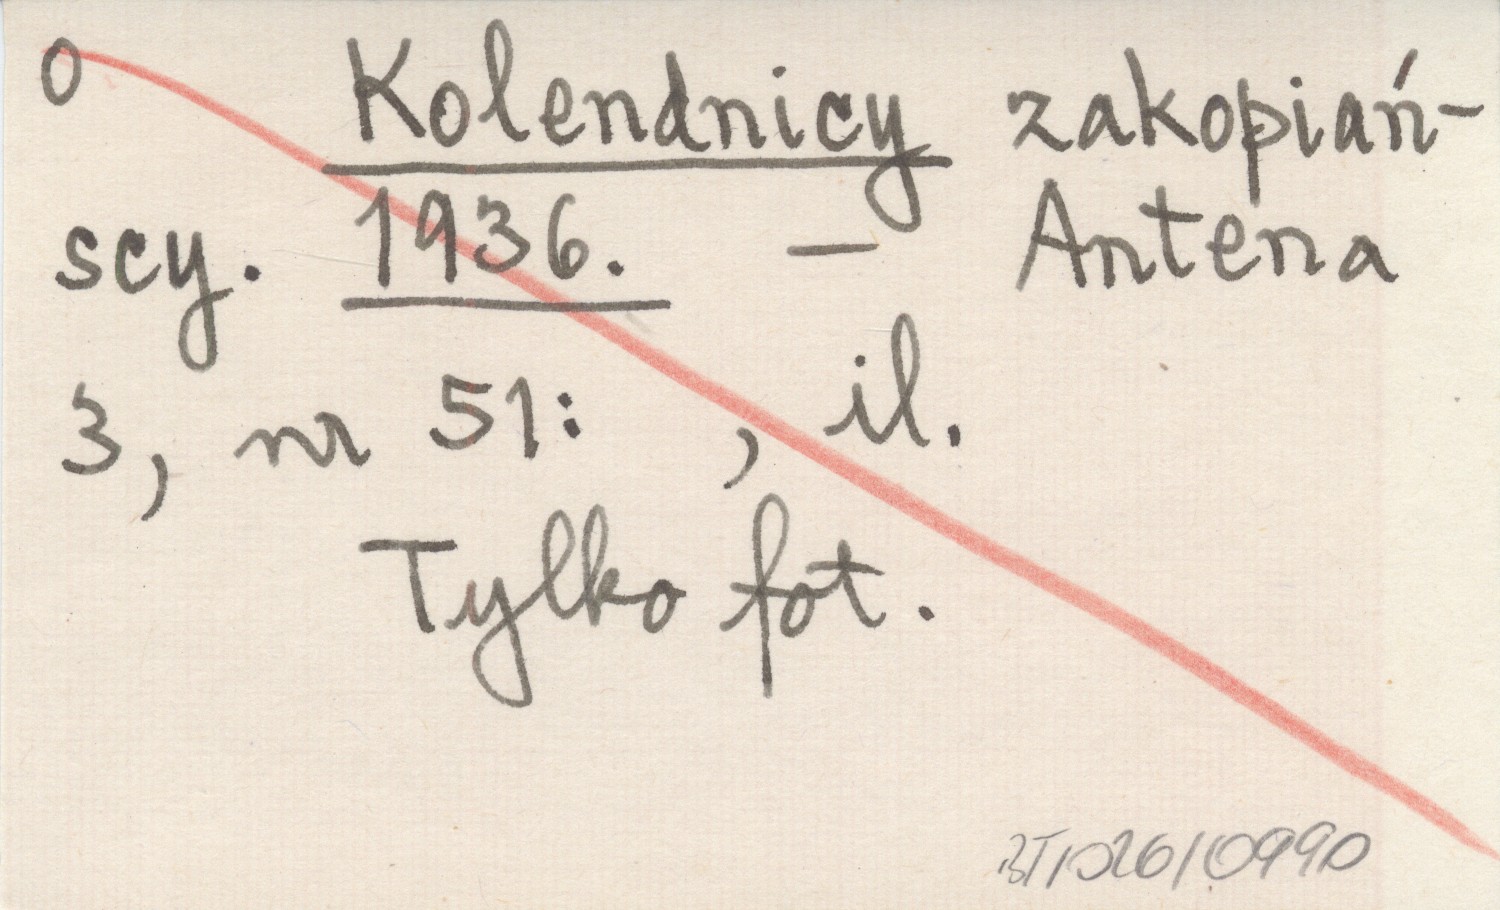 0 Kolendnicy zakopiań-
scy. 1936. — Antena
3, nr 51: , il.
Tylko fot.
BT/026/0990